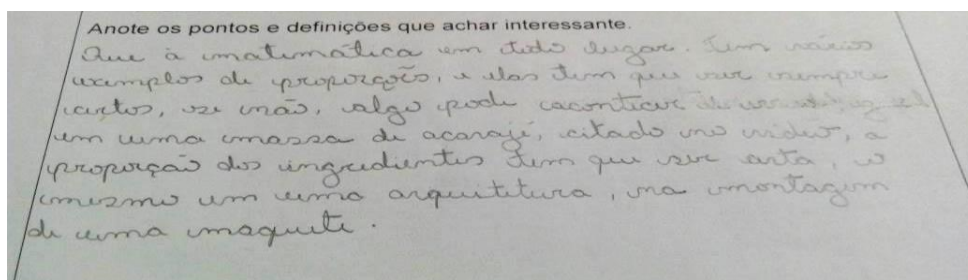 Anote os pontos e definições que achar interessante.
Que à matemática em todo lugar. Tem vários
exemplos de proporções, e elas tem que ser sempre
certos, se não, algo pode acontecer
em uma massa de acarajé, citado no vídeo, a
proporção dos ingredientes tem que ser certa, o
mesmo em uma arquitetura, na montagem
de uma maquete.